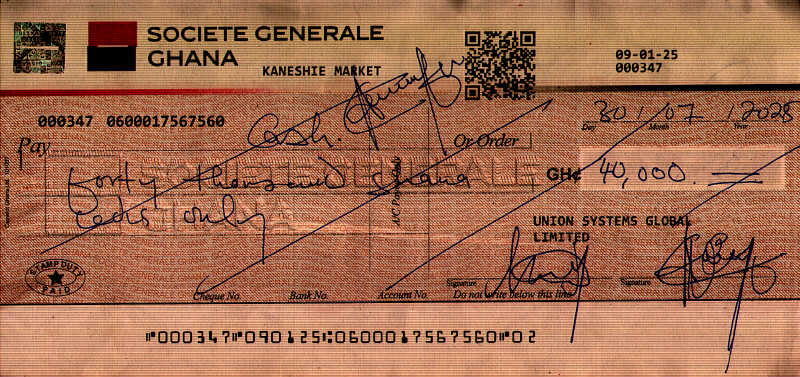 SOCIETE GENERALE
GHANA
KANESHIE MARKET
09-01-25
000347
000347 0600017567560
30 / 07 / 2028
Day Month Year
Pay Cash. Or Order
SOCIETE GENERALE
forty thousand Ghana
cedis only
GH¢ 40,000.
A/C Payee Only
UNION SYSTEMS GLOBAL
LIMITED
STAMP DUTY
PAID
Signature Signature
Cheque No. Bank No. Account No. Do not write below this line
⑈000347⑈090125⑆0600017567560⑈02